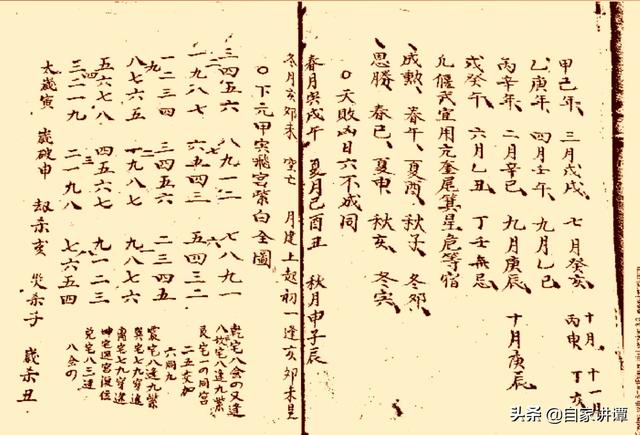 甲己年、三月戊戌、七月癸亥 十月丙申 十一月丁亥
乙庚年、四月壬午、九月乙巳
丙辛年、二月辛巳、九月庚辰 十月庚辰
戊癸年、六月乙丑 丁壬無忌
凡偃武宜用亢奎尾箕星危等宿
成勲、春午、夏酉、秋子、冬卯
思勝、春巳、夏申、秋亥、冬寅
○天敗凶日六不成同
春月寅戌午 夏月巳酉丑 秋月申子辰
冬月亥卯未 空亡 月建上起初一逢亥卯未見
○下元甲寅飛宮紫白全圖
三四五六 八九一二 七八九一
一九八七 六五四三 五四三二
一二三四 三四五六 二三四五
八七六五 一九八七 九八七六
五六七八 四五六七 九一二三
三二一九 二一九八 七六五四
乾宅八會の又逢
八九紫
艮宅一の同宮
二五交加
六同九
震宅八逢九紫
巽宅七九穿途
離宅七九穿途
坤宅
兌宅八三逢
八會の
太歲寅 歲破申 劫杀亥 災杀子 歲杀丑
头条 @自家讲谭